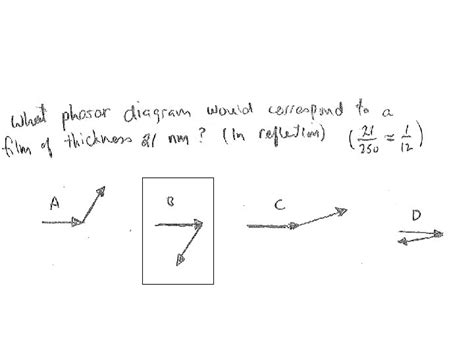 What phasor diagram would correspond to a
film of thickness 21 nm? (In reflection) (21/250 ≈ 1/12)
A B C D